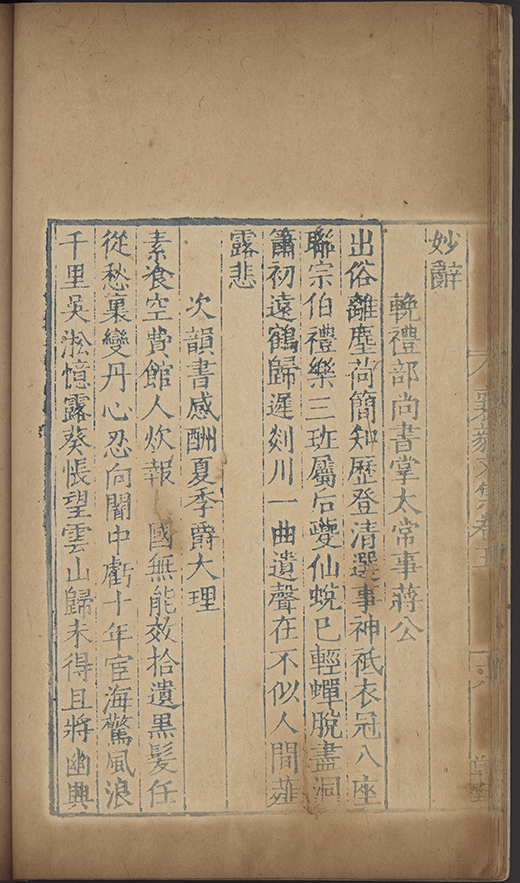 妙辭
輓禮部尚書掌太常事蔣公
出俗離塵荷簡知歷登清選事神祇衣冠八座
聯宗伯禮樂三班屬后夔仙蛻已輕蟬脫盡洞
簫初遠鶴歸遲剡川一曲遺聲在不似人間薤
露悲
次韻書感酬夏季爵大理
素飡空費館人炊報 國無能效拾遺黒髮任
從愁裏變丹心忍向闇中虧十年宦海驚風浪
千里吳淞憶露葵悵望雲山歸未得且將幽興